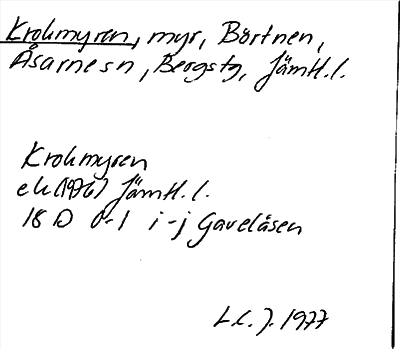 Krokmyren, myr, Börtnen,
Åsarne sn, Bergs tg, Jämtl. l.
Krokmyren
ek (1976) Jämtl. l.
18 D 0-1 i-j Gaveläsen
L.C.J. 1977